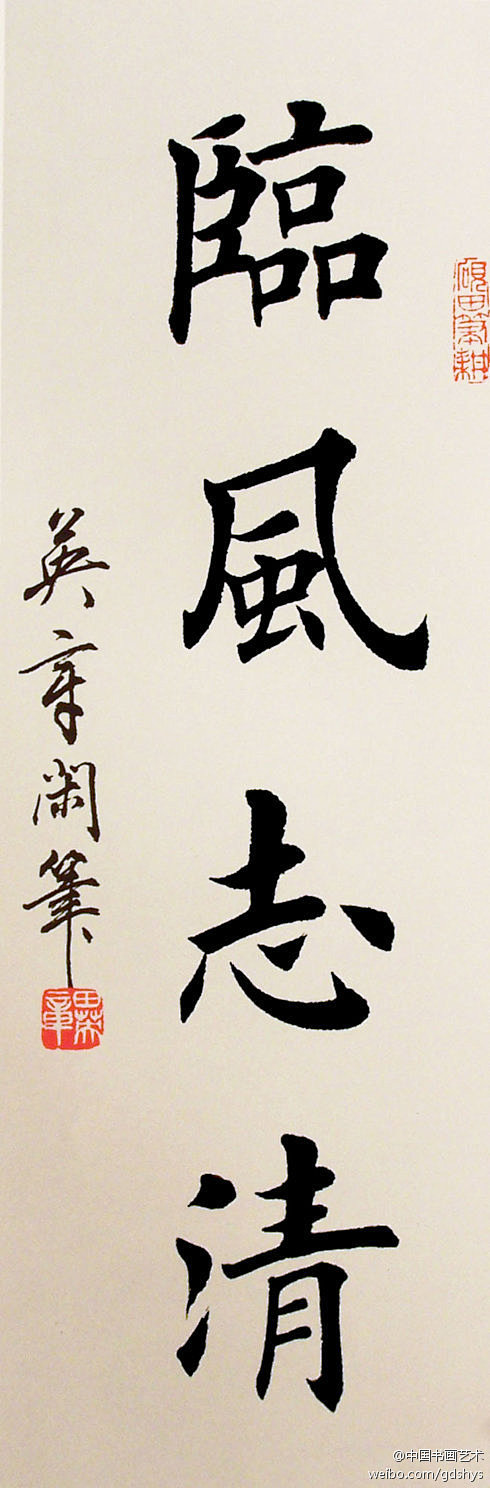 臨風志清
英章閑筆
硯田筆耕
@中国书画艺术
weibo.com/gdshys